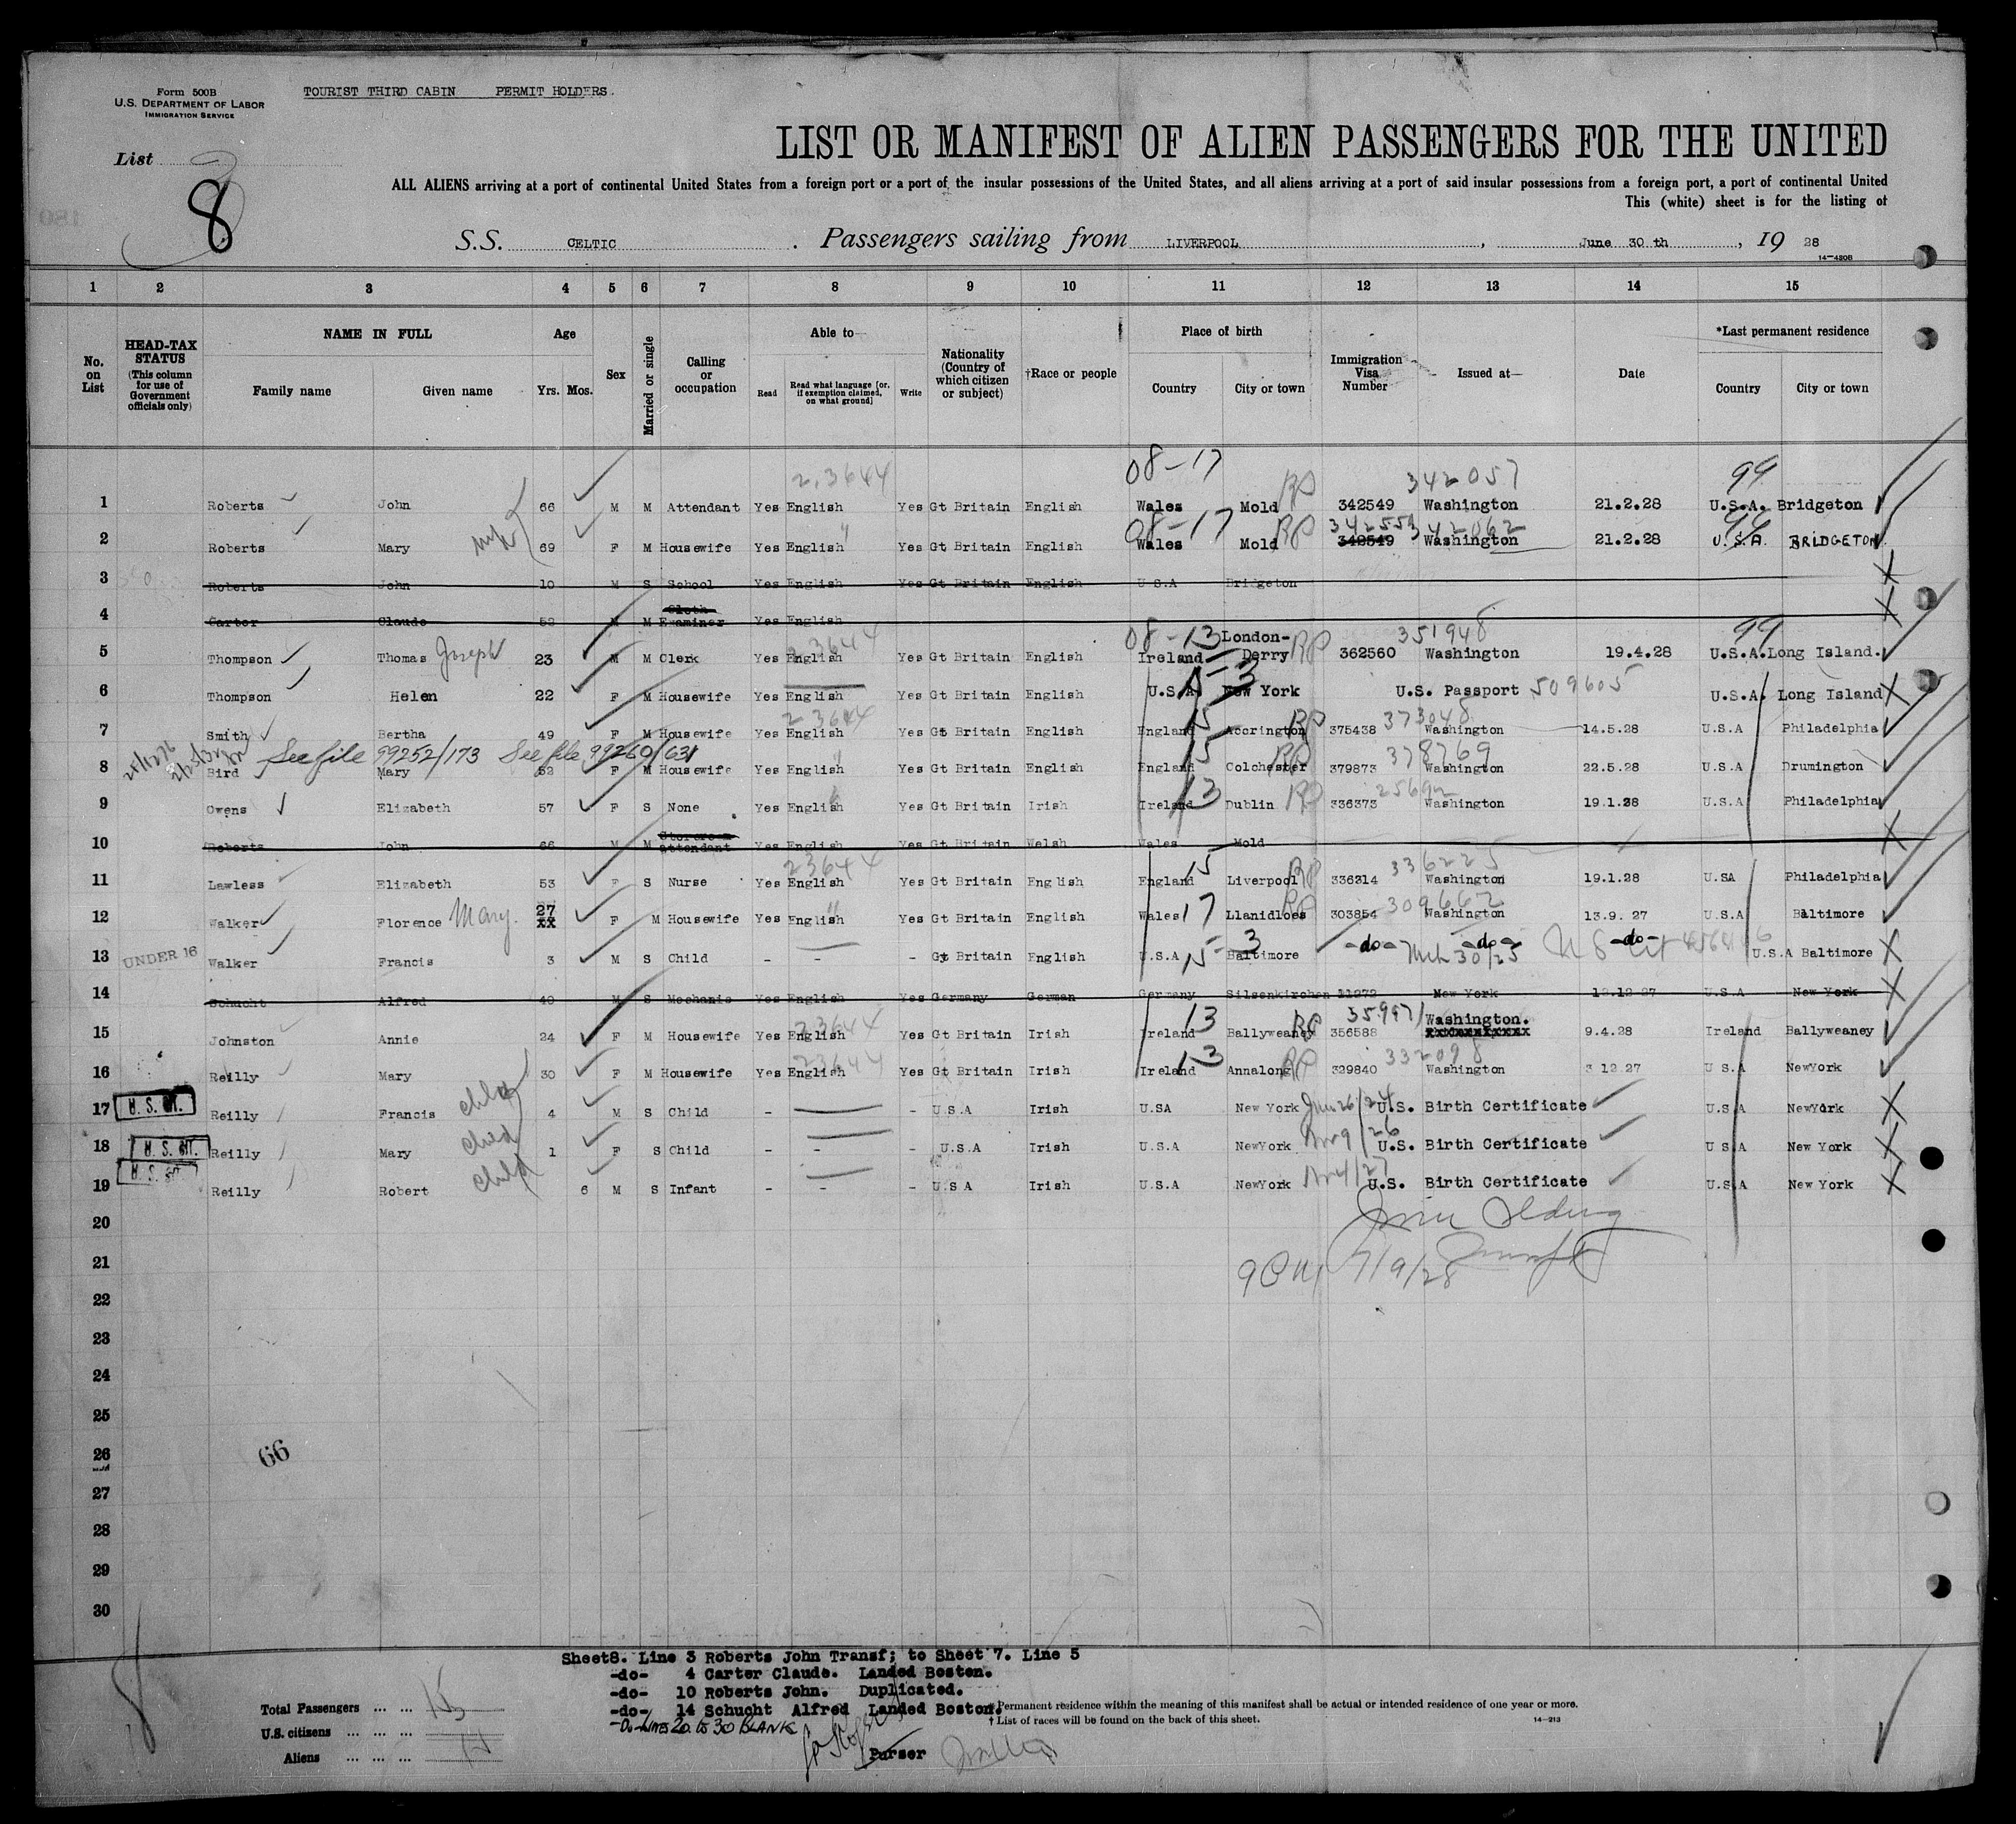 Form 500B
U.S. DEPARTMENT OF LABOR
IMMIGRATION SERVICE
TOURIST THIRD CABIN PERMIT HOLDERS.
List
8
LIST OR MANIFEST OF ALIEN PASSENGERS FOR THE UNITED
ALL ALIENS arriving at a port of continental United States from a foreign port or a port of the insular possessions of the United States, and all aliens arriving at a port of said insular possessions from a foreign port, a port of continental United
This (white) sheet is for the listing of
S.S. CELTIC. Passengers sailing from LIVERPOOL, June 30 th, 19 28
14-430B
1 2 3 4 5 6 7 8 9 10 11 12 13 14 15
No. on List
HEAD-TAX STATUS (This column for use of Government officials only)
NAME IN FULL Family name Given name
Age Yrs. Mos.
Sex
Married or single
Calling or occupation
Able to Read Read what language [or, if exemption claimed, on what ground] Write
Nationality (Country of which citizen or subject)
†Race or people
Place of birth Country City or town
Immigration Visa Number
Issued at
Date
*Last permanent residence Country City or town
08-17 2.3644 342057 99
1 Roberts John 66 M M Attendant Yes English Yes Gt Britain English Wales Mold RP 342549 Washington 21.2.28 U.S.A. Bridgeton
08-17 RP 342062 99
2 Roberts Mary wife 69 F M Housewife Yes English Yes Gt Britain English Wales Mold 342549 Washington 21.2.28 U.S.A. BRIDGETON
3 Roberts John 10 M S School Yes English Yes Gt Britain English U.S.A Bridgeton
4 Carter Claude 52 M M Cloth Examiner Yes English
08-13 351948 99
5 Thompson Thomas Joseph 23 M M Clerk Yes English Yes Gt Britain English Ireland London-Derry RP 362560 Washington 19.4.28 U.S.A. Long Island.
6 Thompson Helen 22 F M Housewife Yes English Yes Gt Britain English U.S.A. New York U.S. Passport 509605 U.S.A. Long Island
23644 15 373048
7 Smith Bertha 49 F M Housewife Yes English Yes Gt Britain English England Accrington RP 375438 Washington 14.5.28 U.S.A Philadelphia
See file 99252/173 See file 99260/631
15 378769
8 Bird Mary 52 F M Housewife Yes English Yes Gt Britain English England Colchester RP 379873 Washington 22.5.28 U.S.A Drumington
9 Owens Elizabeth 57 F S None Yes English Yes Gt Britain Irish Ireland 13 Dublin RP 336373 Washington 19.1.28 U.S.A Philadelphia
10 Roberts John 66 M M Storeroom attendant Yes English Yes Gt Britain Welsh Wales Mold
23644 15 336225
11 Lawless Elizabeth 53 F S Nurse Yes English Yes Gt Britain English England Liverpool RP 336214 Washington 19.1.28 U.SA Philadelphia
12 Walker Florence Mary. 27 F M Housewife Yes English Yes Gt Britain English Wales 17 Llanidloes RP 303854 309662 Washington 13.9.27 U.S.A Baltimore
13 UNDER 16 Walker Francis 3 M S Child - - - Gt Britain English U.S.A 15-3 Baltimore -do- -do- -do- U.S.A Baltimore
14 Schucht Alfred 40 M S Mechanic Yes English Yes Germany German Germany Silsenkirchen 11272 New York 12.12.27 U.S.A New York
23644 13 35997/
15 Johnston Annie 24 F M Housewife Yes English Yes Gt Britain Irish Ireland Ballyweaney RP 356588 Washington. 9.4.28 Ireland Ballyweaney
23644 13 332098
16 Reilly Mary 30 F M Housewife Yes English Yes Gt Britain Irish Ireland Annalong RP 329840 Washington 3 12.27 U S.A NewYork
17 U. S. CIT. Reilly Francis child 4 M S Child - - U.S.A Irish U.SA New York U.S. Birth Certificate U.S.A NewYork
18 U. S. CIT. Reilly Mary child 1 F S Child - - - U.S.A Irish U.S.A NewYork U.S. Birth Certificate U S A New York
19 U. S. CIT. Reilly Robert child 6 M S Infant - - - U.S.A Irish U.S.A NewYork U.S. Birth Certificate U.S.A New York
20
21
7/9/28
22
23
24
25
26
66
27
28
29
30
Sheet8. Line 3 Roberts John Transf; to Sheet 7. Line 5
-do- 4 Carter Claude. Landed Boston.
-do- 10 Roberts John. Duplicated.
-do- 14 Schucht Alfred Landed Boston.
-Do- LINES 20 to 30 BLANK
Purser
Total Passengers ... ... 15
U.S. citizens ... ... ...
Aliens ... ... ...
* Permanent residence within the meaning of this manifest shall be actual or intended residence of one year or more.
† List of races will be found on the back of this sheet.
14-213